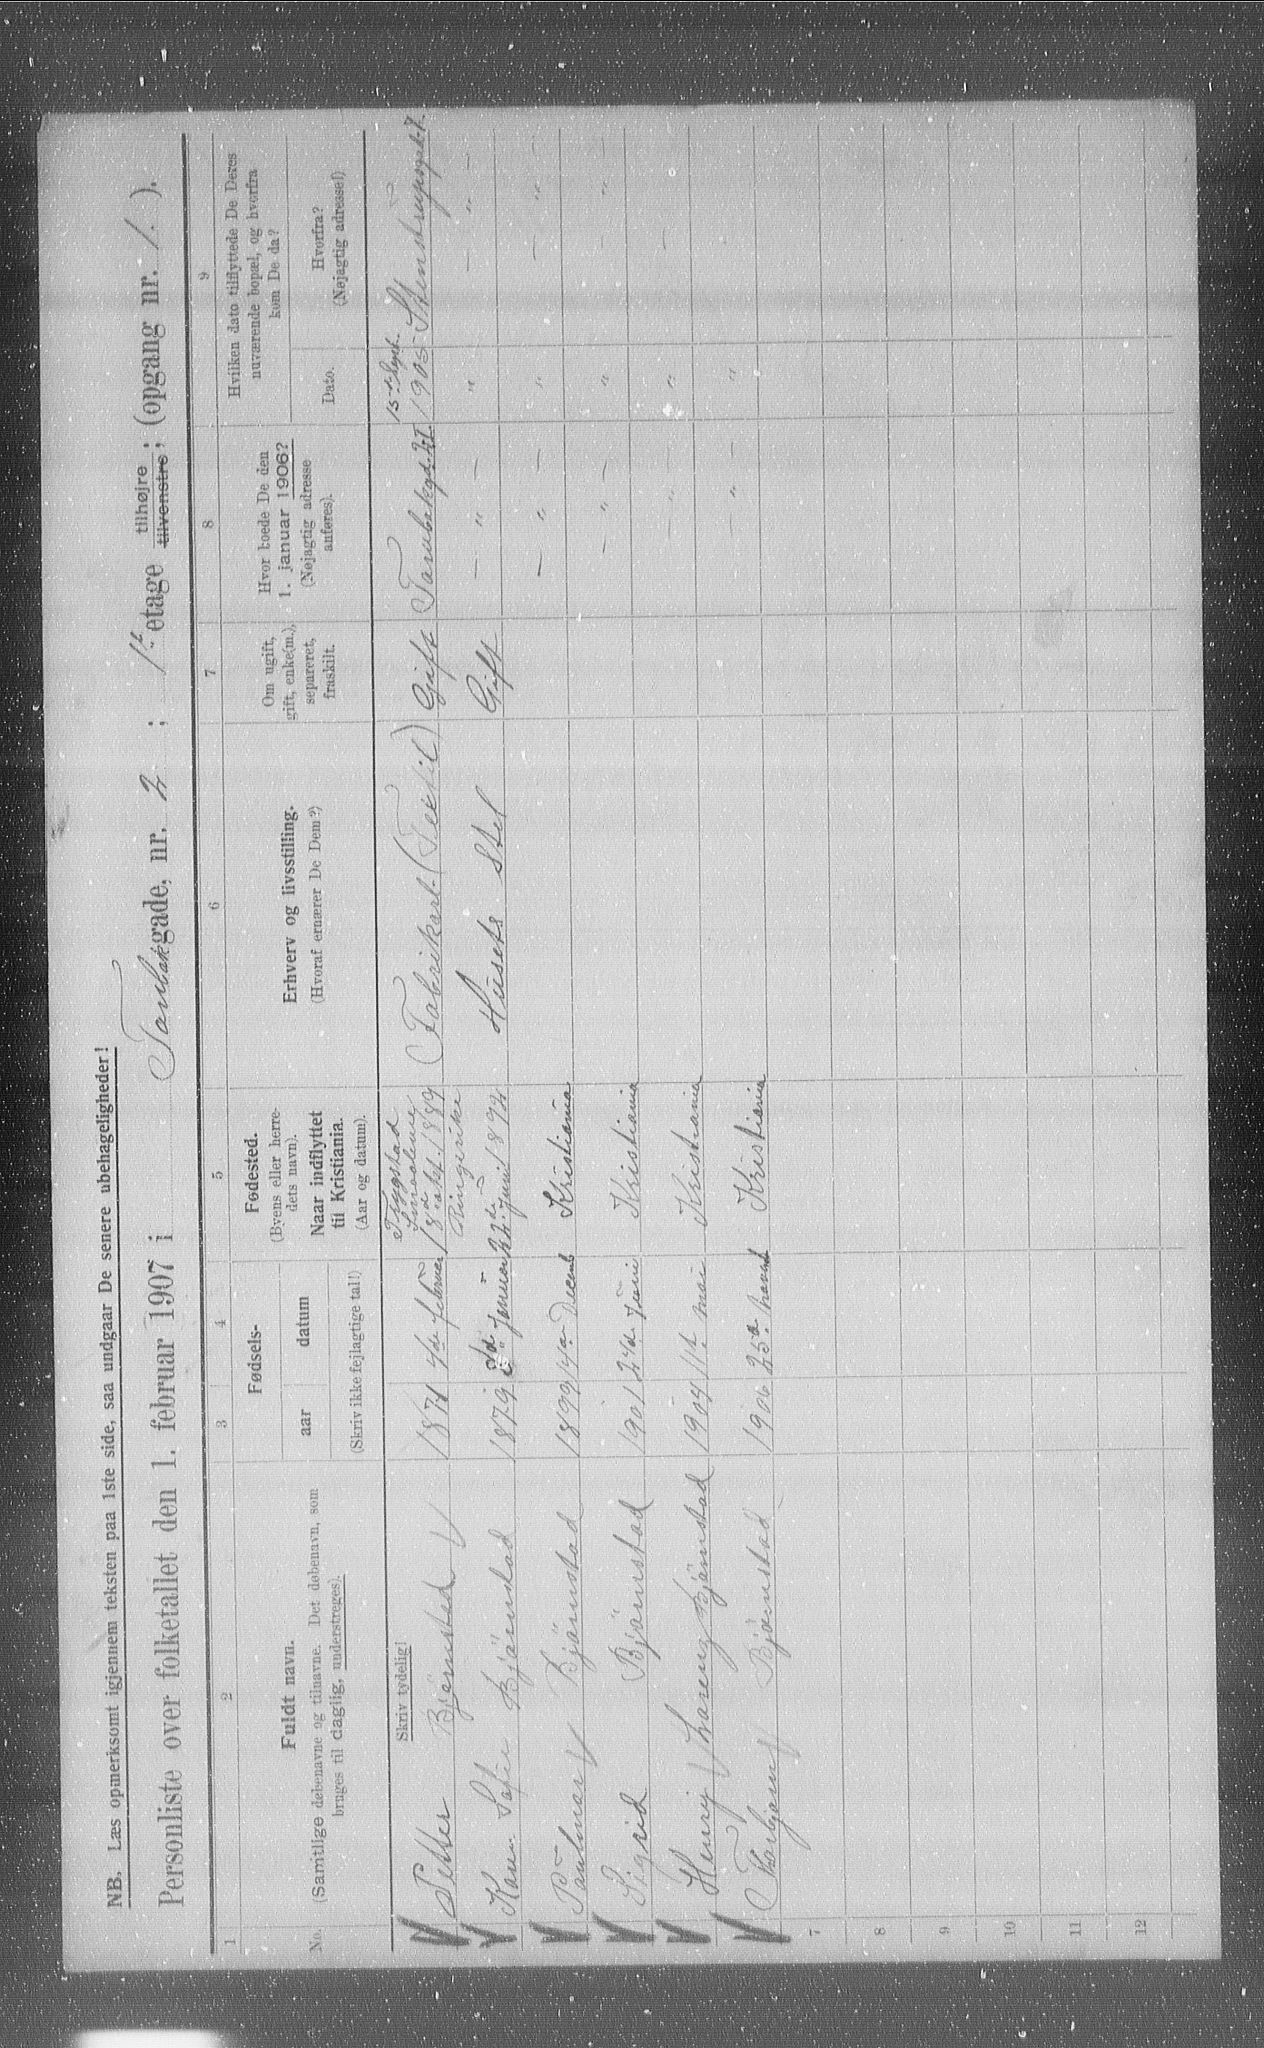 NB. Læs opmerksomt igjennem teksten paa 1ste side, saa undgaar De senere ubehageligheder!
Personliste over folketallet den 1. februar 1907 i Tambakgade, nr. 2 ; 1t etage tilhøjre tilvenstre; (opgang nr. 1. ).
1 2 3 4 5 6 7 8 9
No.
Fuldt navn.
(Samtlige døbenavne og tilnavne. Det døbenavn, som
bruges til daglig, understreges).
Fødsels-
aar datum
(Skriv ikke fejlagtige tal!)
Fødested.
(Byens eller herre-
dets navn).
Naar indflyttet
til Kristiania.
(Aar og datum).
Erhverv og livsstilling.
(Hvoraf ernærer De Dem?)
Om ugift,
gift, enke(m.),
separeret,
fraskilt.
Hvor boede De den
1. januar 1906?
(Nøjagtig adresse
anføres).
Hvilken dato tilflyttede De Deres
nuværende bopæl, og hvorfra
kom De da?
Dato.
Hvorfra?
(Nøjagtig adresse!)
Skriv tydelig!
Petter Bjørnstad 1871 4de februar Trygstad Smaalene 18de okt. 1889 Fabrikarb. (Textil) Gift Tambakgd. 2 I 15de Sept. 1905
Karen Sofie Bjørnstad 1879 Januar Ringerike 22de Juni 1894 Husets Stel Gift — " — " — " —
Paulmar Bjørnstad 1899 14de Decemb Kristiania — " — " — " —
Sigrid Bjørnstad 1901 24de Juni Kristiania — " — " — " —
Henry Lorenz Bjørnstad 1904 11te mai Kristiania — " — " —
Thorbjørn Bjørnstad 1906 25de Kristiania — " — "
7
8
9
10
11
12